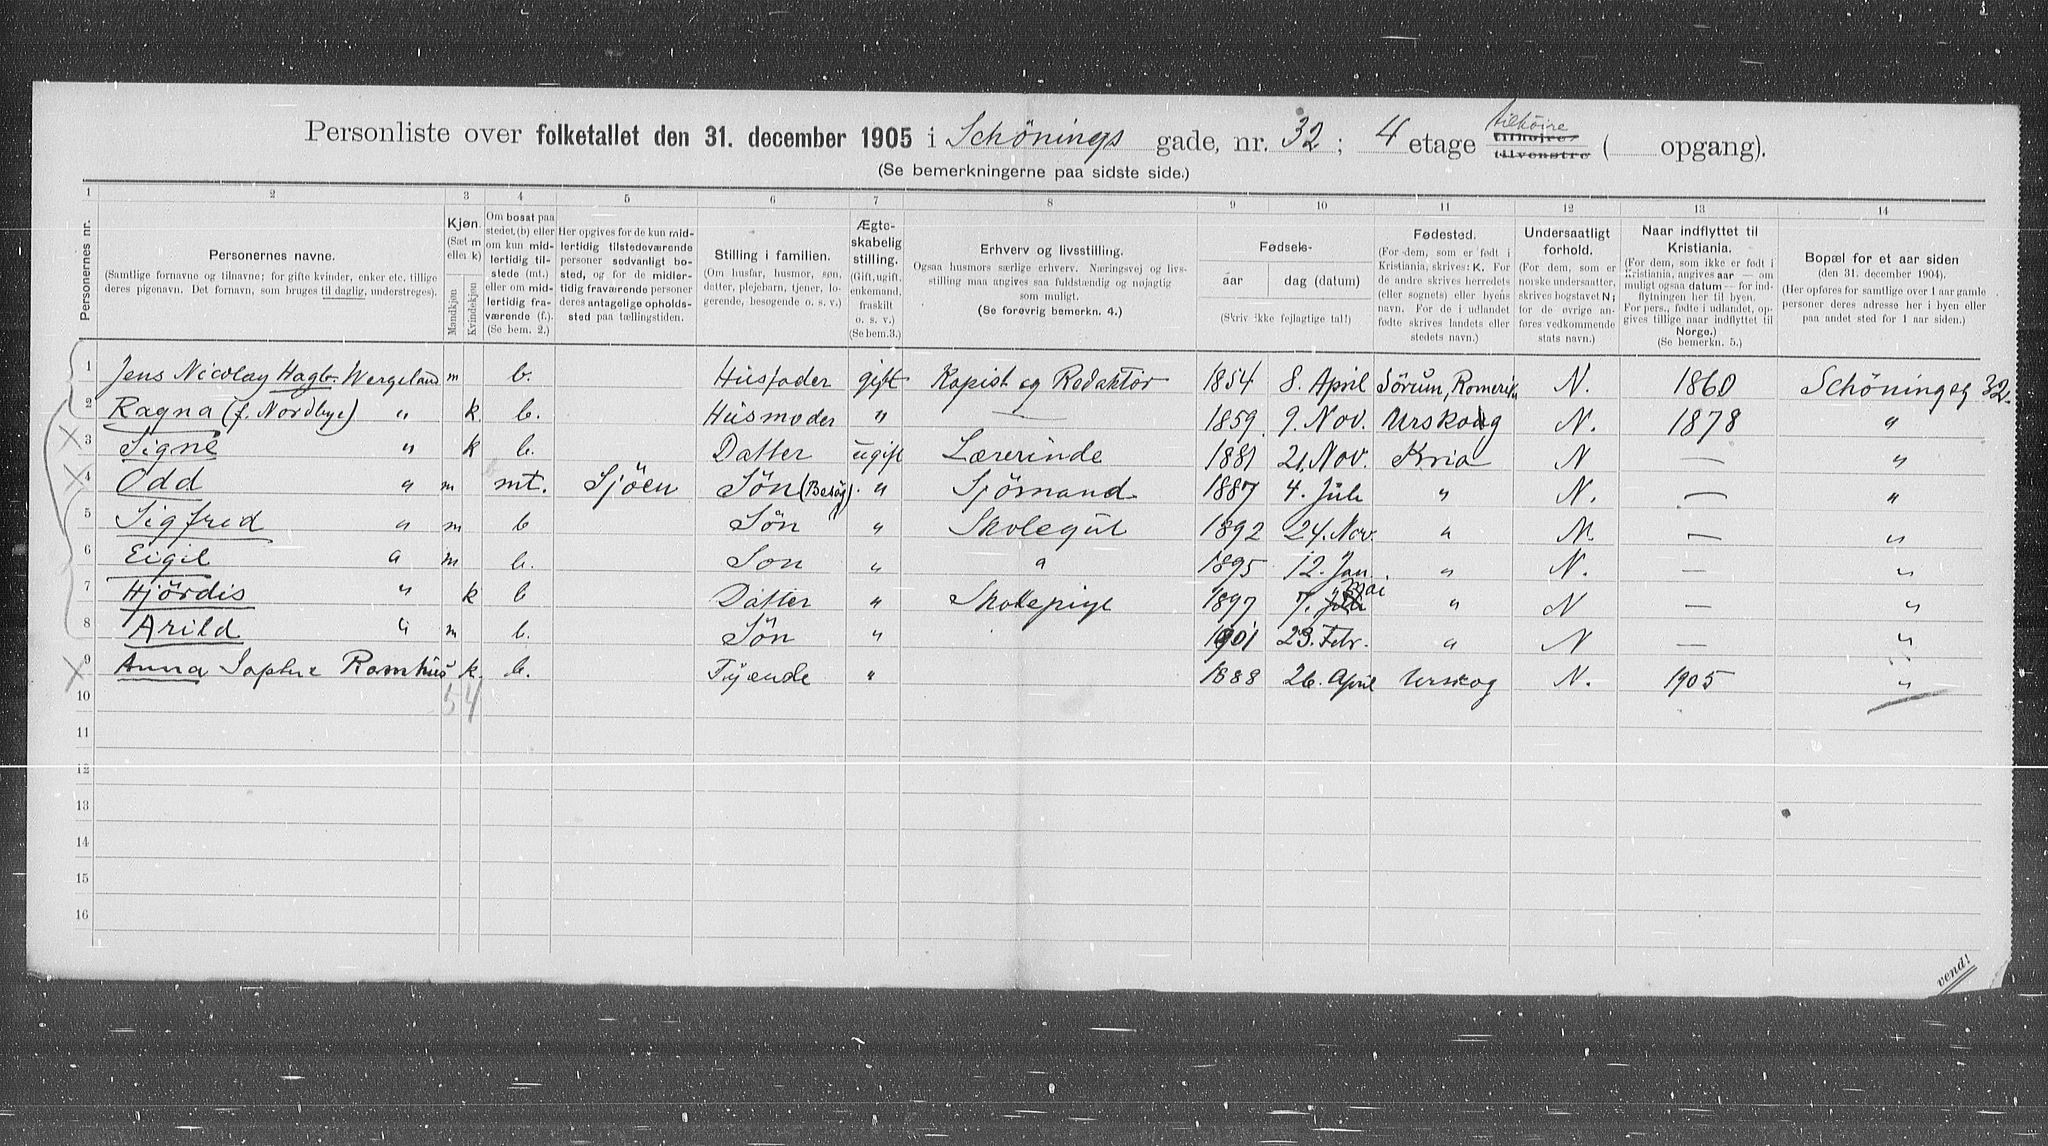 Personliste over folketallet den 31. december 1905 i Schönings gade, nr. 32; 4 etage tilhöire tilhøjre tilvenstre ( opgang).
(Se bemerkningerne paa sidste side.)
1 2 3 4 5 6 7 8 9 10 11 12 13 14
Personernes nr.
Personernes navne.
(Samtlige fornavne og tilnavne; for gifte kvinder, enker etc. tillige
deres pigenavn. Det fornavn, som bruges til daglig, understreges).
Kjøn.
(Sæt m
eller k)
Mandkjøn
Kvindekjøn
Om bosat paa
stedet, (b) eller
om kun mid-
lertidig til-
stede (mt.)
eller om mid-
lertidig fra-
værende (f.).
(Se bem. 2.)
Her opgives for de kun mid-
lertidig tilstedeværende
personer sedvanligt bo-
sted, og for de midler-
tidig fraværende personer
deres antagelige opholds-
sted paa tællingstiden.
Stilling i familien.
(Om husfar, husmor, søn,
datter, plejebarn, tjener, lo-
gerende, besøgende o. s. v.)
Ægte-
skabelig
stilling.
(Gift, ugift,
enkemand,
fraskilt
o. s. v.)
(Se bem.3.)
Erhverv og livsstilling.
Ogsaa husmors særlige erhverv. Næringsvej og livs-
stilling maa angives saa fuldstændig og nøjagtig
som muligt.
(Se forøvrig bemerkn. 4.)
Fødsels-
aar
dag (datum)
(Skriv ikke fejlagtige tal!)
Fødested.
(For dem, som er født i
Kristiania, skrives: K. For
de andre skrives herredets
(eller sognets) eller byens
navn. For de i udlandet
fødte skrives landets eller
stedets navn.)
Undersaatligt
forhold.
(For dem, som er
norske undersaatter,
skrives bogstavet N;
for de øvrige an-
føres vedkommende
stats navn.)
Naar indflyttet til
Kristiania.
(For dem, som ikke er født i
Kristiania, angives aar — om
muligt ogsaa datum — for ind-
flytningen her til byen.
For pers., fødte i udlandet, op-
gives tillige naar indflyttet til
Norge.)
(Se bemerkn. 5.)
Bopæl for et aar siden
(den 31. december 1904).
(Her opføres for samtlige over 1 aar gamle
personer deres adresse her i byen eller
paa andet sted for 1 aar siden.)
1 Jens Nicolay Hagb. Wergeland m b. Husfader gift Kopist og Redaktör 1854 8. April Sörum, Romerike N. 1860 Schöningsg 32.
2 Ragna (f. Nordbye) " k. b. Husmoder " — 1859 9. Nov. Urskoug N. 1878 "
3 Signe " k b. Datter ugift Lærerinde 1881 21. Nov. Kria N — "
4 Odd " m mt. Sjöen Sön (Besög). " Sjömand 1887 4. Juli " N. — "
5 Sigfred " m b Sön " Skolegut 1892 24. Nov. " N. — "
6 Eigil " m b. Son " " 1895 12. Jan. " N. — "
7 Hjördis " k b Datter " Skolepige 1897 7. Juli Mai " N — "
8 Arild " m b. Sön " 1901 23. Febr. " N — "
9 Anna Sophie Romhus k. b. Tyende " 1888 26. April Urskog N. 1905 "
10 5 4
11
12
13
14
15
16
vend!